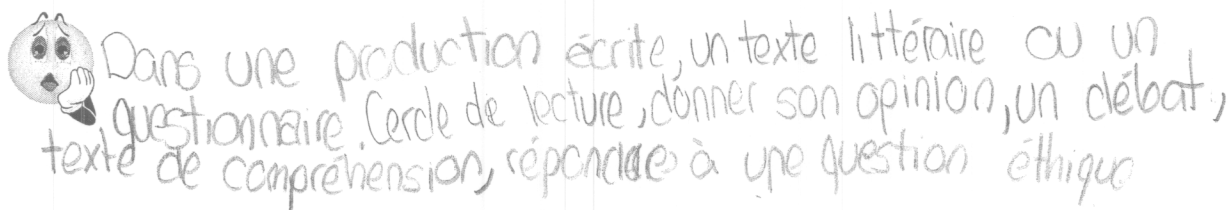 Dans une production écrite, un texte littéraire ou un
questionnaire. Cercle de lecture, donner son opinion, un débat,
texte de compréhension, répondre à une question éthique